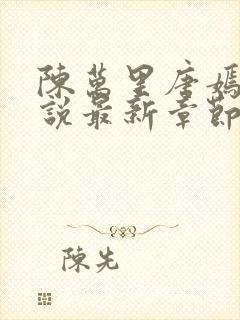 陳萬里唐嫣
說最新章節
陳先